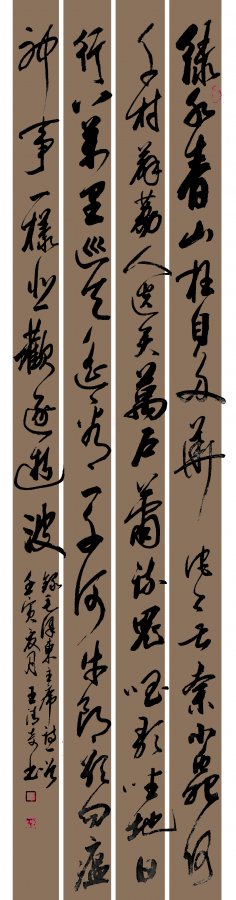 绿水青山枉自多華佗无奈小虫何
千村薜荔人遗矢萬户蕭疏鬼唱歌坐地日
行八萬里巡天遥看一千河牛郎欲问瘟
神事一樣悲歡逐逝波
録毛泽東主席诗一首
壬寅夏月王书